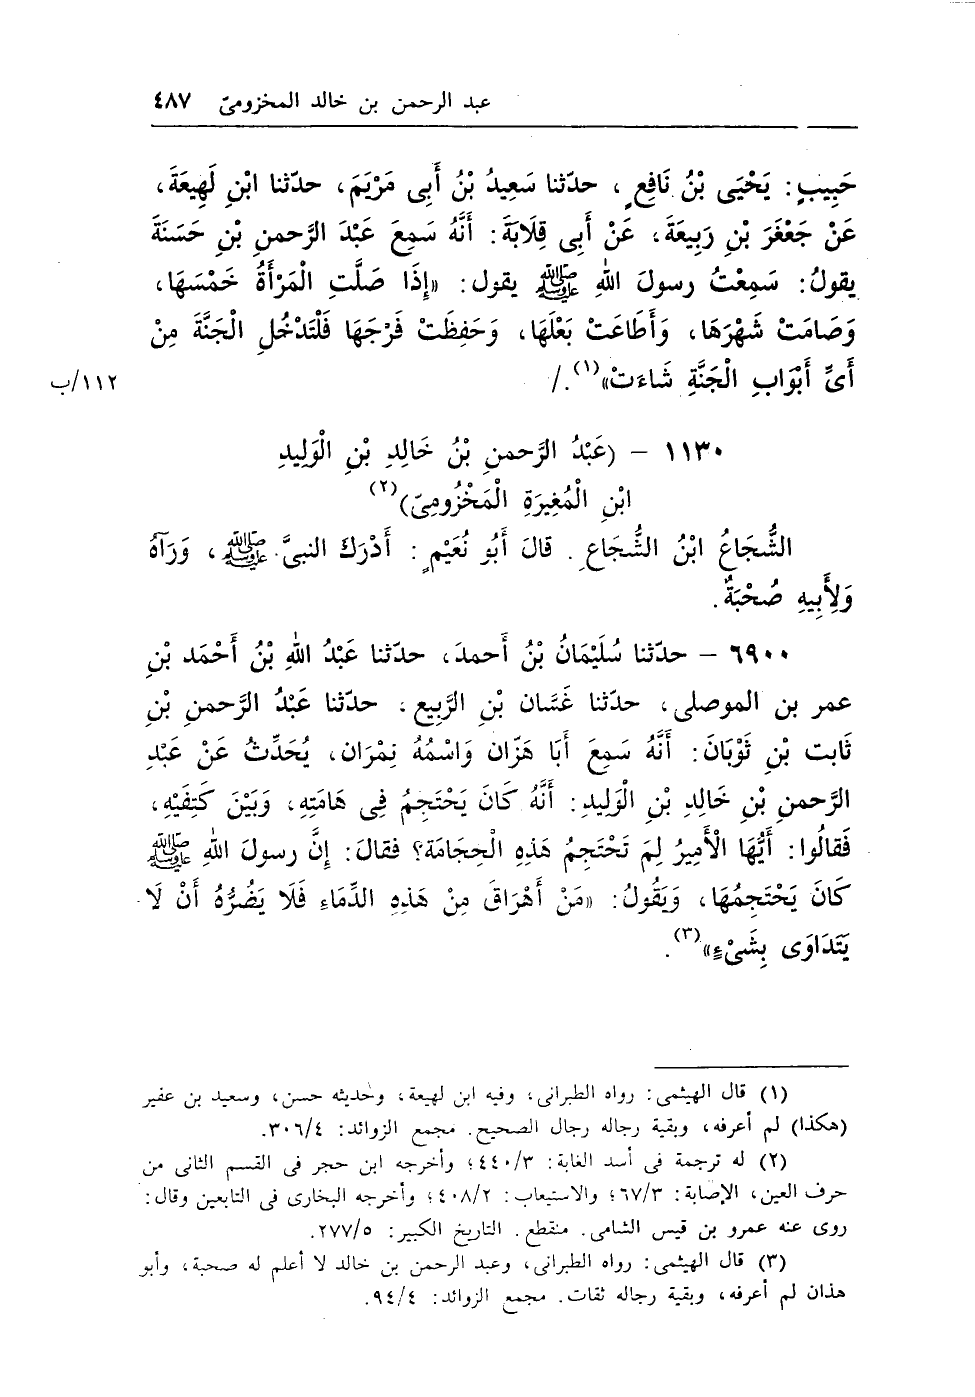 عبد الرحمن بن خالد المخزومىّ ٤٨٧
حَبِيبٍ: يَحْيَى بْنُ نَافِعٍ، حدّثنا سَعِيدُ بْنُ أَبِى مَرْيَمَ، حدّثنا ابْنِ لَهِيعَةَ،
عَنْ جَعْفَرَ بْنِ رَبِيعَةَ، عَنْ أَبِى قِلَابَةَ: أَنَّهُ سَمِعَ عَبْدَ الرَّحمنِ بْنِ حَسَنَةَ
يقولُ: سَمِعْتُ رسولَ اللهِ ﷺ يقول: «إِذَا صَلَّتِ الْمَرْأَةُ خَمْسَهَا،
وَصَامَتْ شَهْرَهَا، وَأَطَاعَتْ بَعْلَهَا، وَحَفِظَتْ فَرْجَهَا فَلْتَدْخُلِ الْجَنَّةَ مِنْ
أَىِّ أَبْوَابِ الْجَنَّةِ شَاءَتْ»(١)./
١١٢/ب
١١٣٠ - (عَبْدُ الرَّحمنِ بْنُ خَالِدِ بْنِ الْوَلِيدِ
ابْنِ الْمُغِيرَةِ الْمَخْزُومِىّ)(٢)
الشُّجَاعُ ابْنُ الشُّجَاعِ. قالَ أَبُو نُعَيْمٍ: أَدْرَكَ النبىَّ ﷺ، وَرَآهُ
وَلِأَبِيهِ صُحْبَةٌ.
٦٩٠٠ - حدّثنا سُلَيْمَانُ بْنُ أَحمدَ، حدّثنا عَبْدُ اللهِ بْنُ أَحْمَد بْنِ
عمر بن الموصلى، حدّثنا غَسَّان بْنِ الرَّبِيع، حدّثنا عَبْدُ الرَّحمنِ بْنِ
ثَابت بْنِ ثَوْبَانَ: أَنَّهُ سَمِعَ أَبَا هَزّان وَاسْمُهُ نِمْرَان، يُحَدِّثُ عَنْ عَبْدِ
الرَّحمنِ بْنِ خَالِدِ بْنِ الْوَلِيدِ: أَنَّهُ كَانَ يَحْتَجِمُ فِى هَامَتِهِ، وَبَيْنَ كَتِفَيْهِ،
فَقَالُوا: أَيُّهَا الْأَمِيرُ لِمَ تَحْتَجِمُ هَذِهِ الْحِجَامَة؟ فقالَ: إِنَّ رسولَ اللهِ ﷺ
كَانَ يَحْتَجِمُهَا، وَيَقُولُ: «مَنْ أَهْرَاقَ مِنْ هَذِهِ الدِّمَاءِ فَلَا يَضُرُّهُ أَنْ لَا
يَتَدَاوَى بِشَىْءٍ»(٣).
(١) قال الهيثمى: رواه الطبرانى، وفيه ابن لهيعة، وحديثه حسن، وسعيد بن عفير
(هكذا) لم أعرفه، وبقية رجاله رجال الصحيح. مجمع الزوائد: ٣٠٦/٤.
(٢) له ترجمة فى أسد الغابة: ٤٤٠/٣؛ وأخرجه ابن حجر فى القسم الثانى من
حرف العين، الإصابة: ٦٧/٣؛ والاستيعاب: ٤٠٨/٢؛ وأخرجه البخارى فى التابعين وقال:
روى عنه عمرو بن قيس الشامى. منقطع. التاريخ الكبير: ٢٧٧/٥.
(٣) قال الهيثمى: رواه الطبرانى، وعبد الرحمن بن خالد لا أعلم له صحبة، وأبو
هذان لم أعرفه، وبقية رجاله ثقات. مجمع الزوائد: ٩٤/٤.